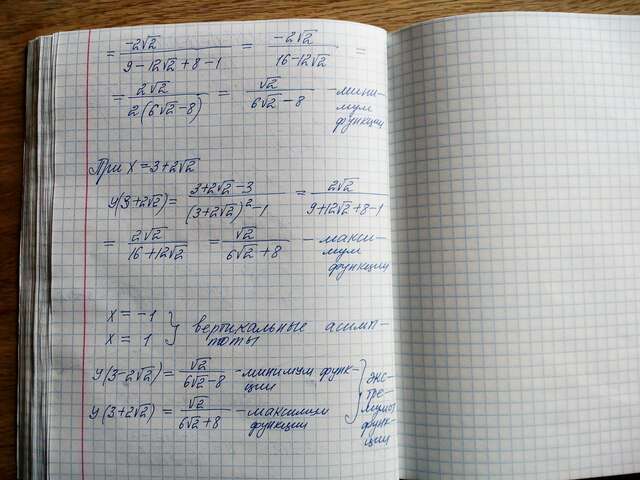 = -2√2 / (9 - 12√2 + 8 - 1) = -2√2 / (16 - 12√2) =
= 2√2 / (2(6√2 - 8)) = √2 / (6√2 - 8) - мини-
мум
функции
При x = 3 + 2√2
y(3 + 2√2) = (3 + 2√2 - 3) / ((3 + 2√2)² - 1) = 2√2 / (9 + 12√2 + 8 - 1)
= 2√2 / (16 + 12√2) = √2 / (6√2 + 8) - макси-
мум
функции
x = -1
x = 1 } вертикальные асимп-
тоты
y(3 - 2√2) = √2 / (6√2 - 8) - минимум функ-
ции
y(3 + 2√2) = √2 / (6√2 + 8) - максимум
функции
} экс-
тре-
мумы
функ-
ции